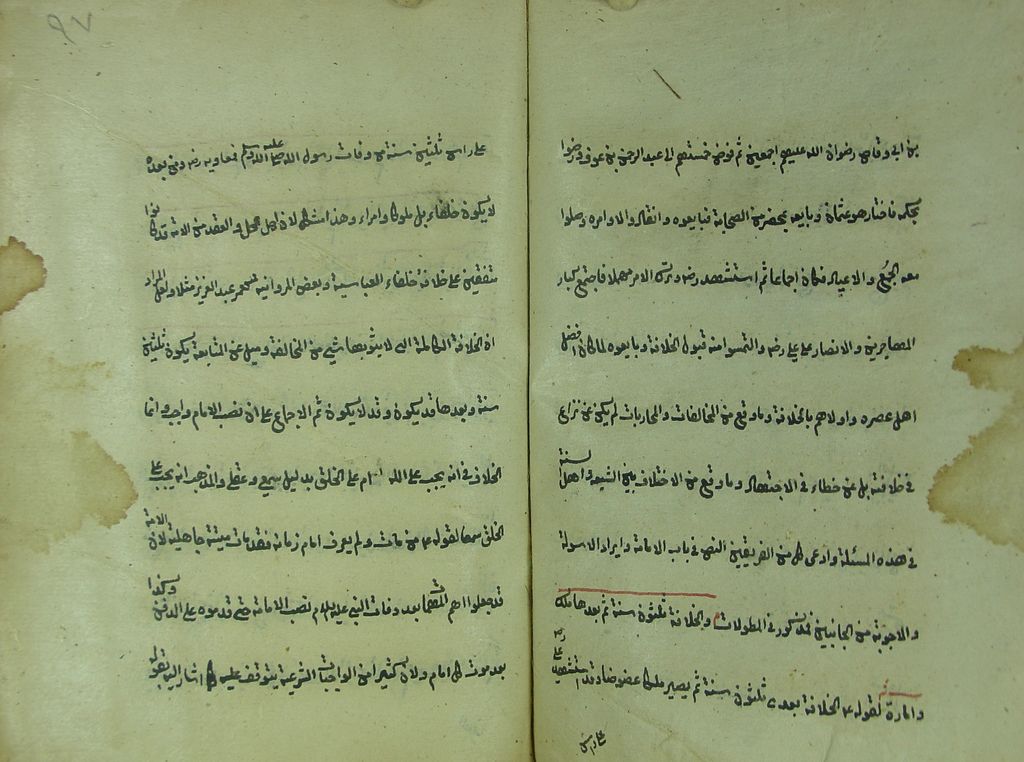 بن ابى وقاص رضوان الله عليهم اجمعين ثم فوض خمستهم الى عبد الرحمن بن عوف ورضوا
بحكمه فاختار هو عثمان وبايعه بمحضر من الصحابة فبايعوه وانقادوا لاوامره وصلوا
معه الجمع والاعياد فكان اجماعا ثم استشهد رضه وترك الامر مهملا فاجتمع كبار
المهاجرين والانصار على على رضه والتمسوا منه قبول الخلافة وبايعوه لما كان افضل
اهل عصره واولاهم بالخلافة وما وقع من المخالفات والمحاربات لم يكن عن نزاع
فى خلافته بل عن خطاء فى الاجتهاد وما وقع من الاختلاف بين الشيعه واهل السنة
فى هذه المسئلة وادعى كل من الفريقين النص فى باب الامامة وايراد الاسولة
والاجوبة من الجانبين فمذكور فى المطولات والخلافة ثلثون سنة ثم بعدها ملك
وامارة لقوله عم الخلافة بعدى ثلثون سنة ثم يصير ملكا عضوضا وقد استشهد على رضه
على راس
على راس ثلثين سنة من وفات رسول الله صلى الله عليه وسلم فمعاويه رضه ومن بعده
لا يكون خلفاء بل ملوكا وامراء وهذا مشكل لان اهل الحل والعقد من الامة قد كانوا
متفقين على خلافة خلفاء العباسية وبعض المروانية كعمر عبد العزيز مثلا ولعل المراد
ان الخلافة الكاملة التى لا يشوبها شئ من المخالفة وميل عن المتابعة يكون ثلثين
سنة وبعدها قد يكون وقد لا يكون ثم الاجماع على ان نصب الامام واجب وانما
الخلاف فى انه يجب على الله ام على الخلق بدليل سمعى وعقلى والمذهب انه يجب على
الخلق سمعا لقوله عم من مات ولم يعرف امام زمانه فقد مات ميتة جاهلية لان الامة
قد جعلوا اهم المهمات بعد وفات النبى عليه السلام نصب الامامة حتى قدموه على الدفن وكذا
بعد موت كل امام ولان كثيرا من الواجبات الشرعية يتوقف عليه كما اشار اليه بقوله
٩٧